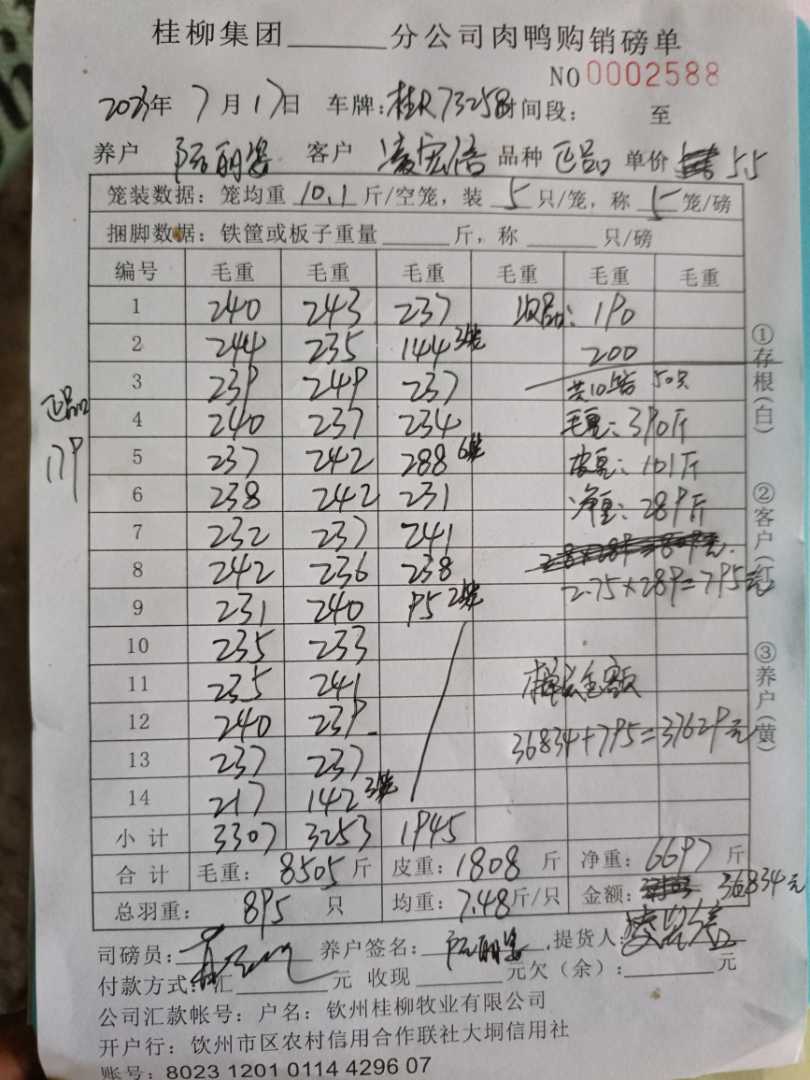 桂柳集团______分公司肉鸭购销磅单
NO 0002588
2023年 7月17日 车牌:桂R73258 时间段: 至
养户 阮丽姿 客户 凌宏倍 品种 正品 单价 5.5
笼装数据: 笼均重 10.1 斤/空笼, 装 5 只/笼, 称 5 笼/磅
捆脚数据: 铁筐或板子重量______斤, 称______只/磅
编号 毛重 毛重 毛重 毛重 毛重 毛重
1 240 243 237 次品: 190
2 244 235 144 3笼 200
3 239 249 237 共10笼 50只
4 240 237 234 毛重: 390斤
5 237 242 288 6笼 皮重: 101斤
6 238 242 231 净重: 289斤
7 232 237 241
8 242 236 238 2.75×289=795元
9 231 240 95 2笼
10 235 233
11 235 241 本单总金额
12 240 239 36834+795=37629元
13 237 237
14 217 142 3笼
小计 3307 3253 1945
合计 毛重: 8505斤 皮重: 1808斤 净重: 6697斤
总羽重: 895 只 均重: 7.48斤/只 金额: 36834元
司磅员: 养户签名: 阮丽姿 提货人:
付款方式: 汇______元 收现______元欠(余):______元
公司汇款帐号: 户名: 钦州桂柳牧业有限公司
开户行: 钦州市区农村信用合作联社大垌信用社
账号: 8023 1201 0114 4296 07
正品
179
①存根(白)
②客户(红)
③养户(黄)